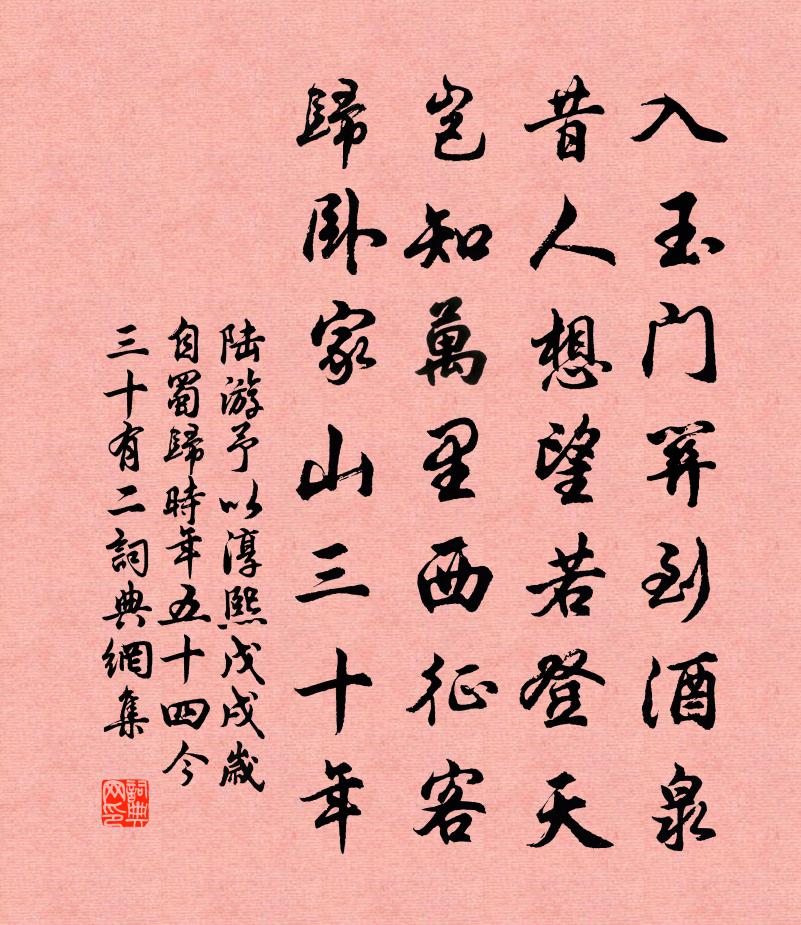 入玉门關到酒泉
昔人想望若登天
岂知萬里西征客
歸卧家山三十年
陆游予以淳熙戊戌歲
自蜀歸時年五十四今
三十有二詞典網集
詞典网印